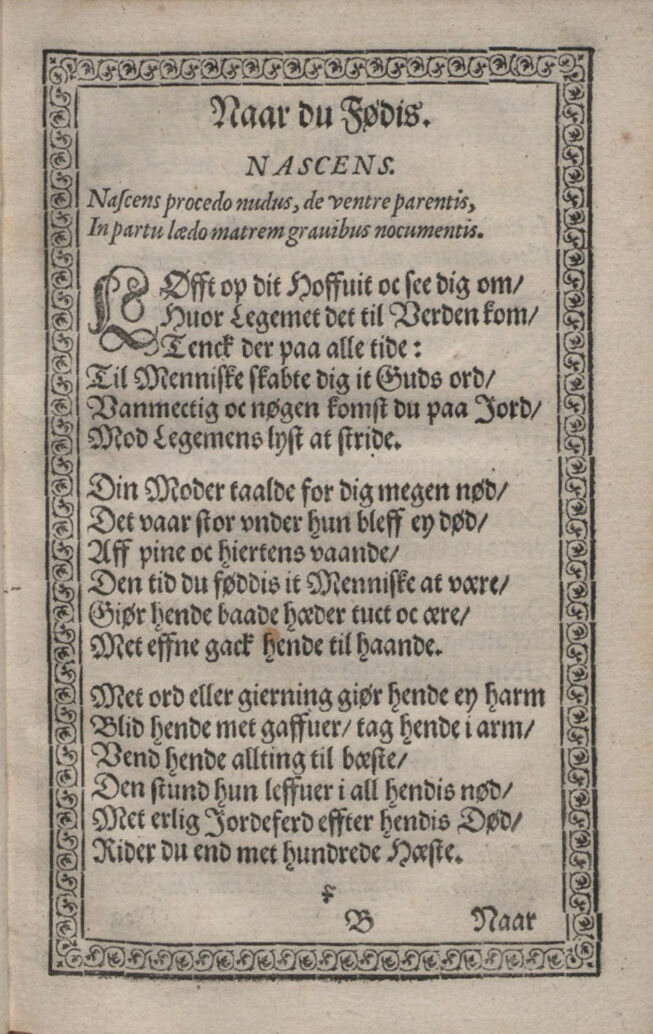 Naar du Fødis.
NASCENS.
Naſcens procedo nudus, de ventre parentis,
In partu lædo matrem grauibus nocumentis.
LØfft op dit Hoffuit oc see dig om/
Huor Legemet det til Verden kom/
Tenck der paa alle tide:
Til Menniske skabte dig it Guds ord/
Vanmectig oc nøgen komst du paa Jord/
Mod Legemens lyst at stride.
Din Moder taalde for dig megen nød/
Det vaar stor vnder hun bleff ey død/
Aff pine oc hiertens vaande/
Den tid du føddis it Menniske at være/
Giør hende baade hæder tuct oc ære/
Met effne gack hende til haande.
Met ord eller gierning giør hende ey harm
Blid hende met gaffuer/ tag hende i arm/
Vend hende allting til bæste/
Den stund hun leffuer i all hendis nød/
Met erlig Jordeferd effter hendis Død/
Rider du end met hundrede Hæste.
B Naar